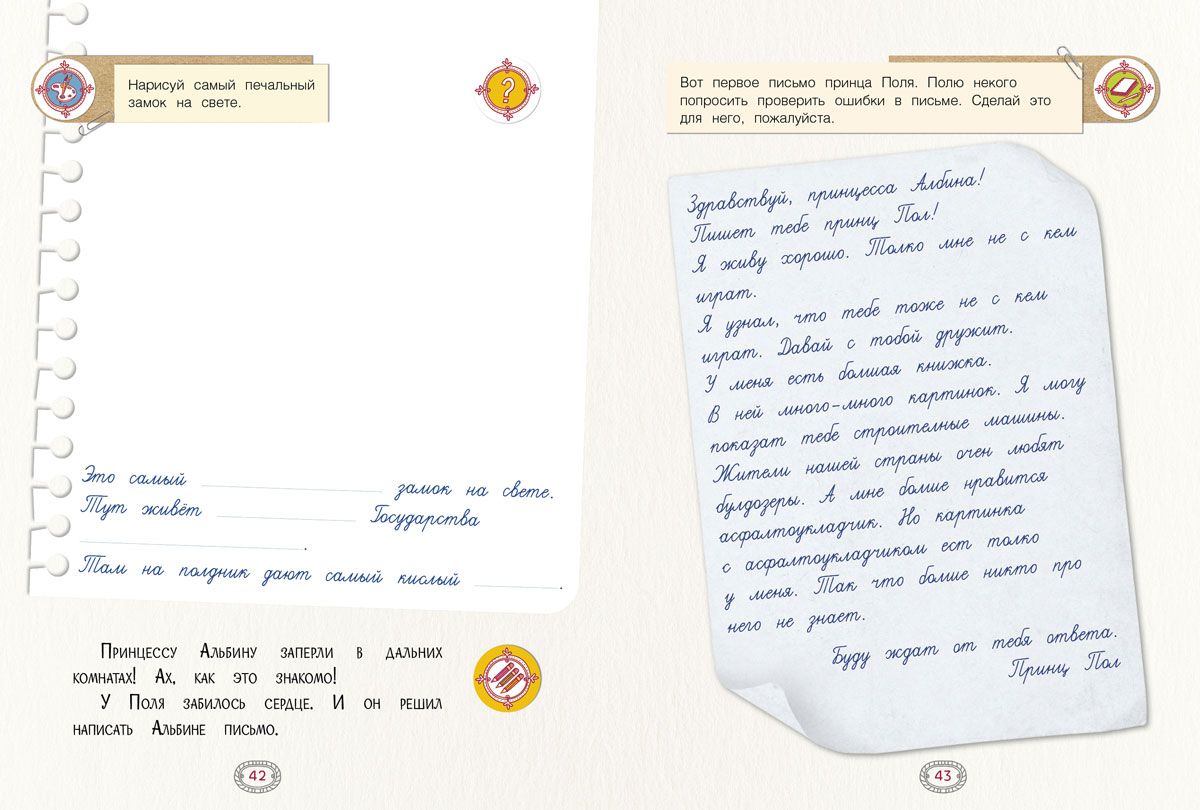 Нарисуй самый печальный
замок на свете.
?
Это самый замок на свете.
Тут живёт Государства
.
Там на полдник дают самый кислый .
Принцессу Альбину заперли в дальних
комнатах! Ах, как это знакомо!
У Поля забилось сердце. И он решил
написать Альбине письмо.
42
Вот первое письмо принца Поля. Полю некого
попросить проверить ошибки в письме. Сделай это
для него, пожалуйста.
Здравствуй, принцесса Албина!
Пишет тебе принц Пол!
Я живу хорошо. Толко мне не с кем
играт.
Я узнал, что тебе тоже не с кем
играт. Давай с тобой дружит.
У меня есть болшая книжка.
В ней много-много картинок. Я могу
показат тебе строителные машины.
Жители нашей страны очен любят
булдозеры. А мне болше нравится
асфалтоукладчик. Но картинка
с асфалтоукладчиком ест толко
у меня. Так что болше никто про
него не знает.
Буду ждат от тебя ответа.
Принц Пол
43